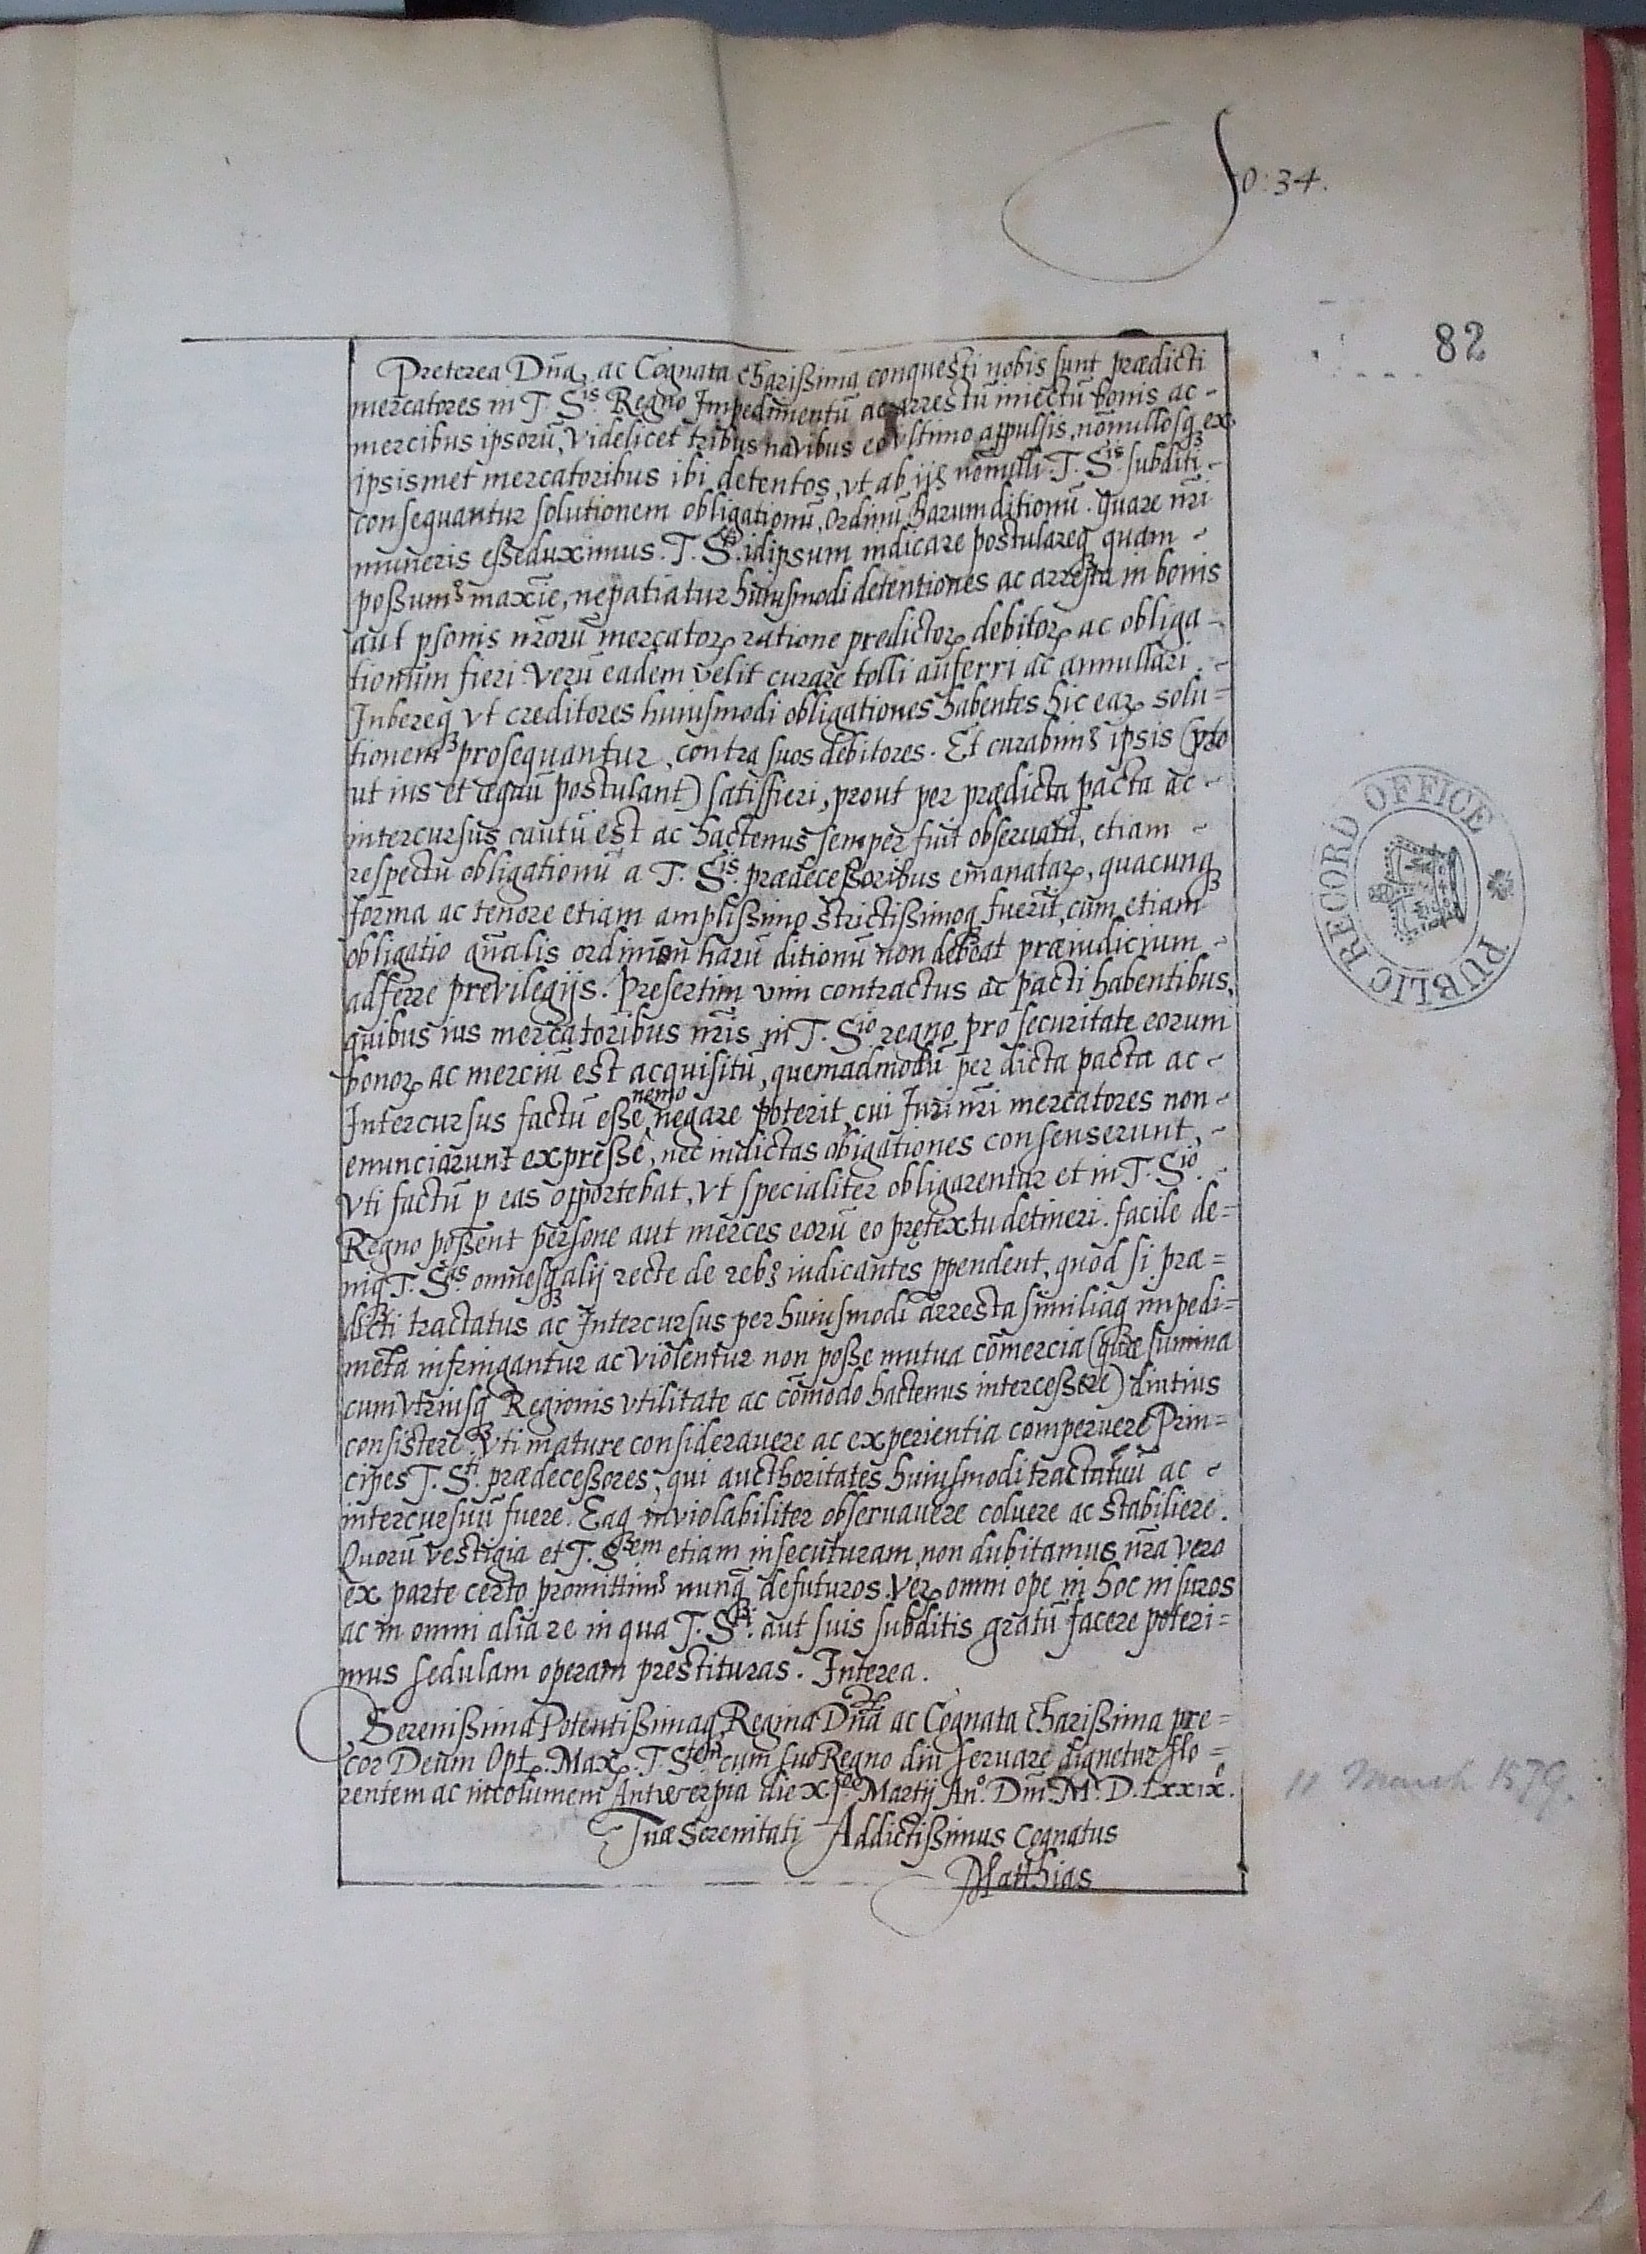 fo: 34.
82
Preterea Dña, ac Cognata charißima conquesti nobis sunt prædicti
mercatores in T. S.is Regno Impedimentū ac arrestū iniectū bonis ac
mercibus ipsorū, videlicet tribus navibus eo ultimo appulsis, nōnullosqꝫ ex
ipsismet mercatoribus ibi detentos, vt ab ijs nōnulli T. S.is subditi
consequantur solutionem obligationū, Ordinū harum ditionū. Quare nr̄i
muneris eße duximus. T. S.ti idipsum indicare postulareqꝫ quam
poßumꝰ maxīe, ne patiatur huiusmodi detentiones ac arresta in bonis
aut p̱sonis nr̄orū mercatorꝝ ratione predictorꝝ debitorꝝ ac obliga-
tionum fieri. Verū eadem velit curare tolli auferri ac annullari.
Iubereqꝫ vt creditores huiusmodi obligationes habentes hic earꝝ solu=
tionem prosequantur, contra suos debitores. Et curabimꝰ ipsis (pro
ut ius et æquū postulant) satisfieri, prout per prædicta pacta ac
intercursus cautū est ac hactenus semper fuit obseruatū, etiam
respectu obligationū a T. S.is prædeceßoribus emanatarꝝ, quacunqꝫ
forma ac tenore etiam amplißimo strictißimoqꝫ fuerit, cum etiam
obligatio gn̄alis ordinum harū ditionū non debeat præiudicium
adferre previlegijs. Presertim vim contractus ac pacti habentibus,
quibus ius mercatoribus nr̄is in T. S.io regno pro securitate eorum
bonorꝝ ac merciū est acquisitū, quemadmodū per dicta pacta ac
Intercursus factū eße nemo negare poterit, cui Iuri nr̄i mercatores non
enunciarunt expreßè, nec in dictas obigationes consenserunt,
vti factū p̱ eas opportebat, vt specialiter obligarentur et in T. S.io
Regno poßent persone aut merces eorū eo prętextu detineri. facile de=
niqꝫ T. S.as omnesqꝫ alij recte de rebꝰ iudicantes p̱pendent, quòd si præ=
dicti tractatus ac Intercursus per huiusmodi arresta similiaqꝫ impedi=
mēta infringantur ac violentur non poße mutua cōmercia (quæ summa
cum vtriusqꝫ Regionis vtilitate ac cōmodo hactenus interceßere) diutius
consistere. Vti mature considerauere ac experientia comperuere Prin=
cipes T. S.ti prædeceßores, qui aucthoritates huiusmodi tractatuū ac
intercursuū fuere. Eaqꝫ inviolabiliter obseruauere coluere ac stabiliere.
Quorū vestigia et T. S.em etiam insecuturam, non dubitamus, nr̄a vero
ex parte certo promittimꝰ nunqꝫ defuturos. Verꝝ omni ope in hoc nisuros
ac in omni alia re in qua T. S.ti aut suis subditis gratū facere poteri=
mus sedulam operam prestituras. Interea.
Serenißima Potentißimaqꝫ Regina Dn̄a ac Cognata charißima pre=
cor Deum Opt. Max. T. S.tem cum suo Regno diu seruare dignetur flo=
rentem ac incolumem Antwerpia die Martij An.o Dm̄. M. D. Lxxix.
Tuæ Serenitati Addictißimus Cognatus
Matthias
11 March 1579.
PUBLIC RECORD OFFICE